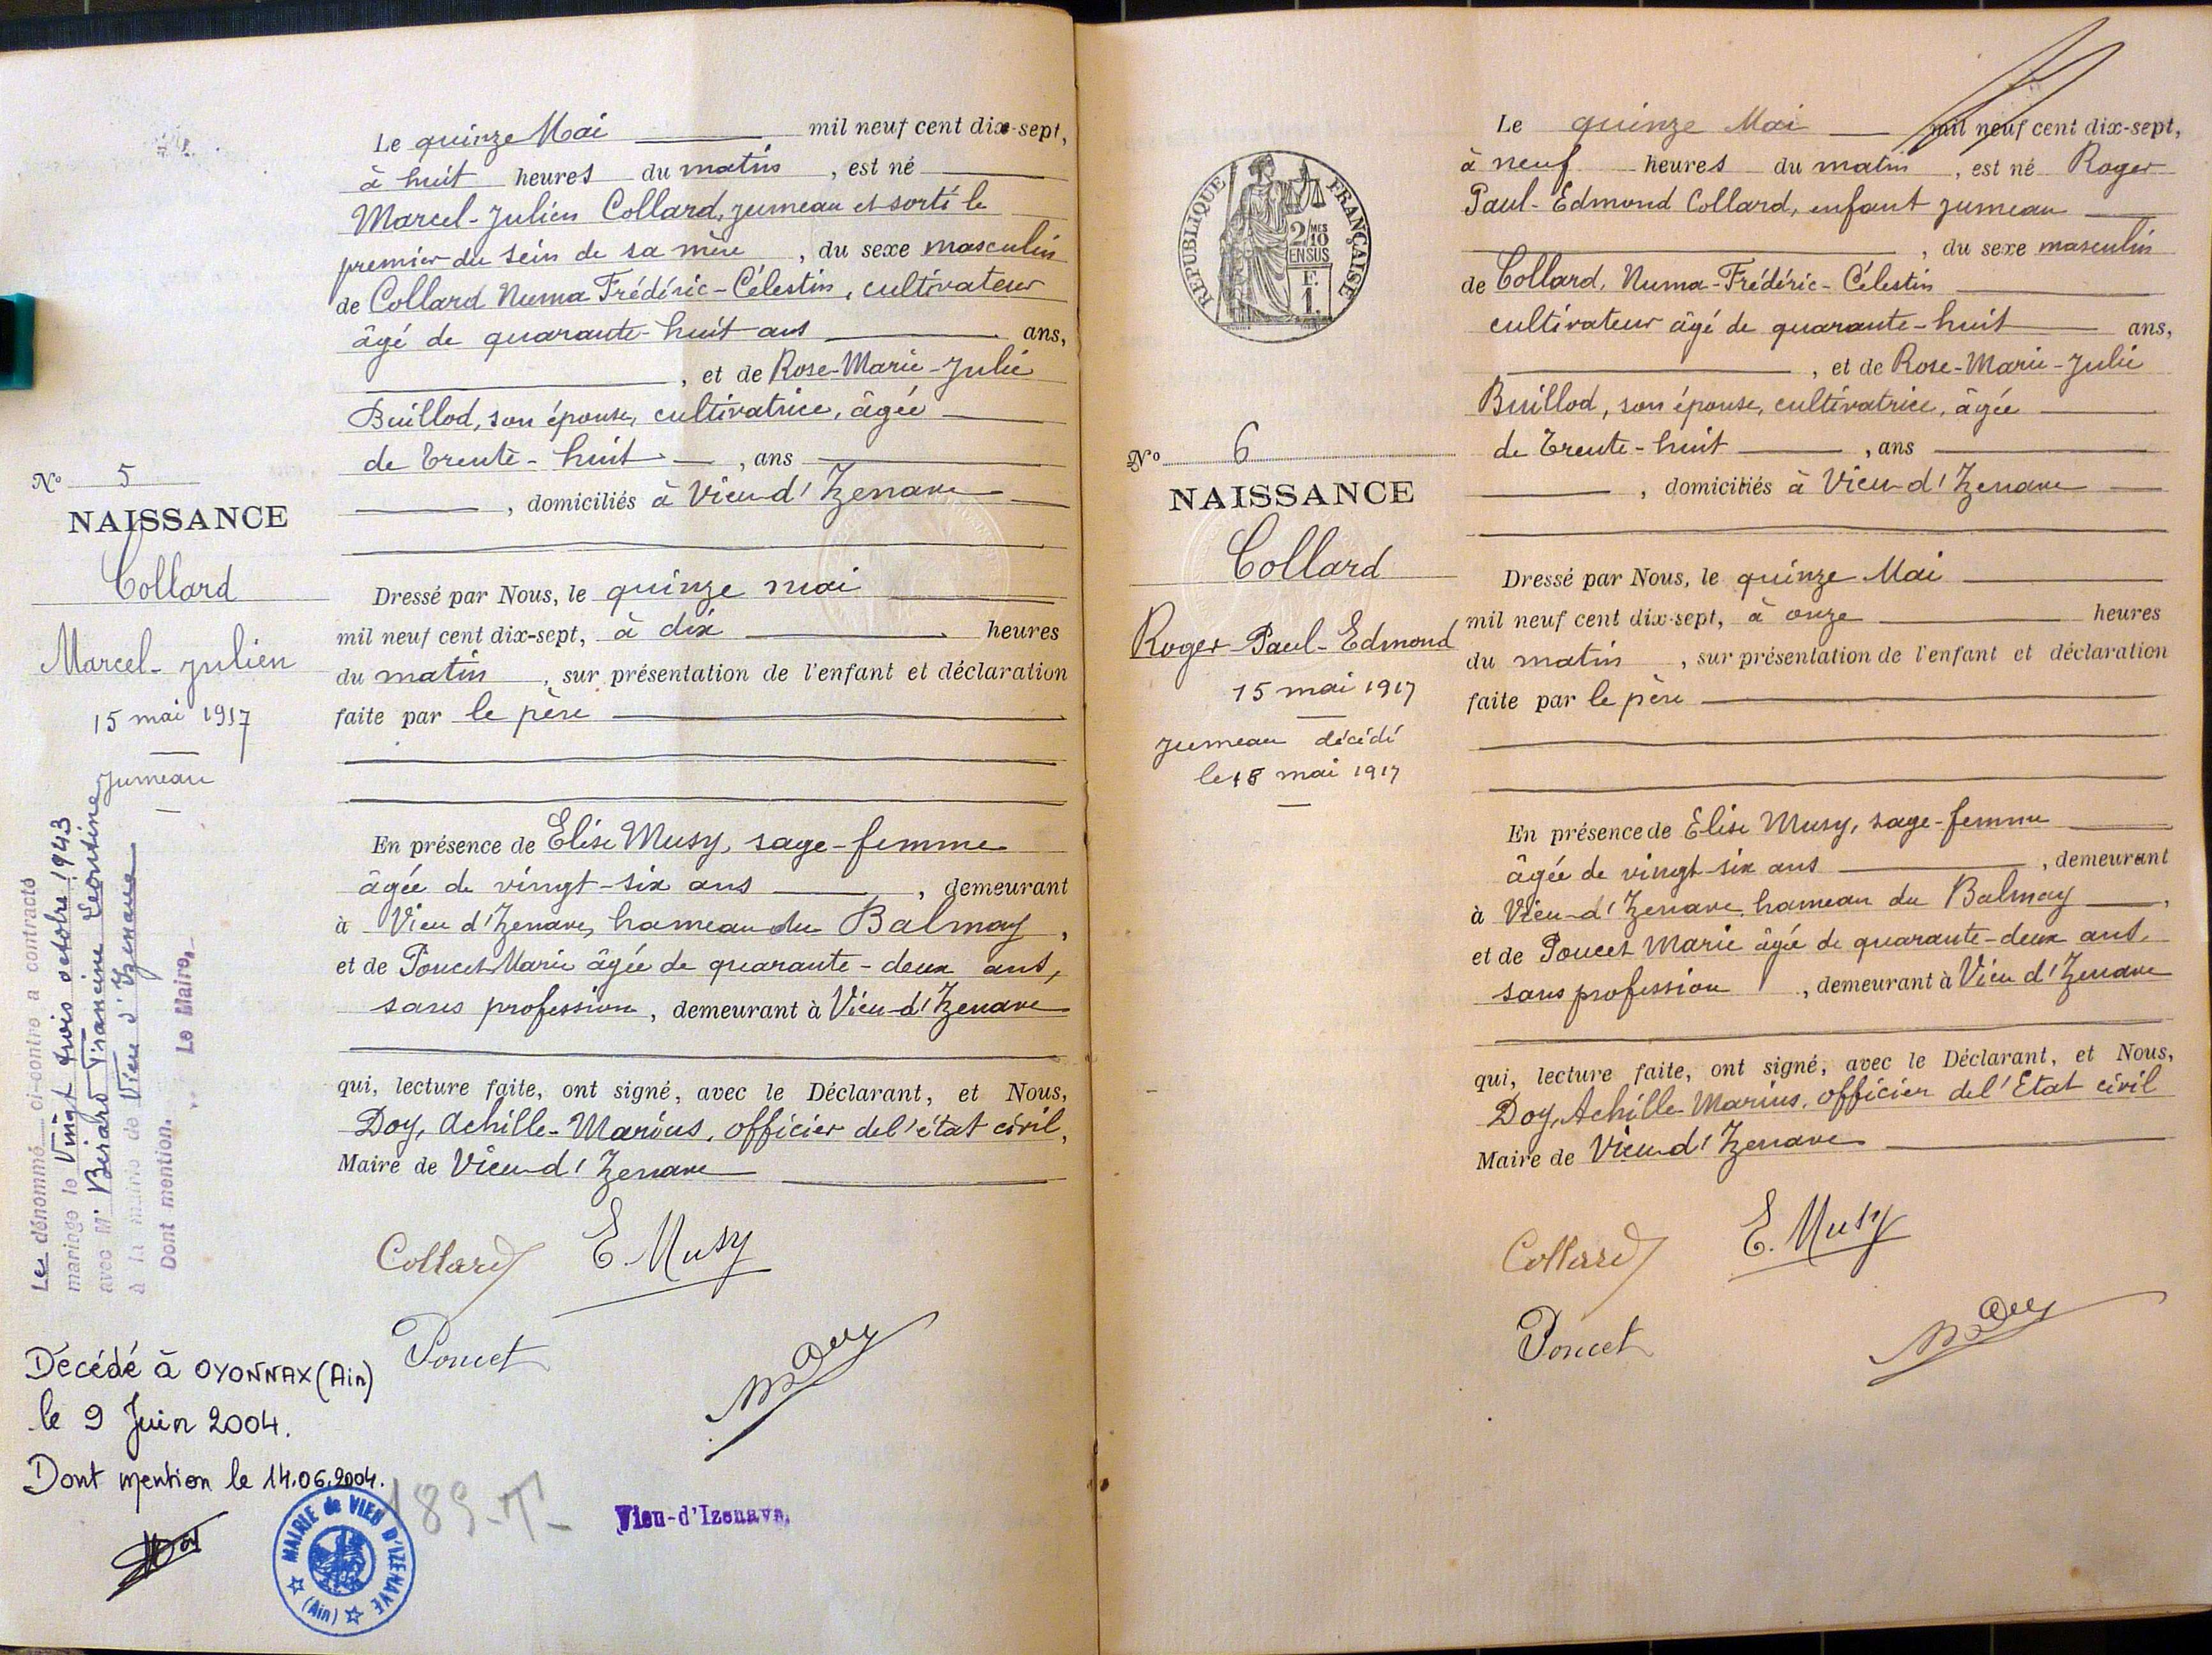 Le quinze Mai mil neuf cent dix-sept,
à huit heures du matin, est né
Marcel-Julien Collard, jumeau et sorti le
premier du sein de sa mère, du sexe masculin
de Collard Numa Frédéric-Célestin, cultivateur
âgé de quarante-huit ans ans,
, et de Rose-Marie-Julie
Buillod, son épouse, cultivatrice, âgée
de trente-huit, ans
, domiciliés à Vieu d'Izenave
Nº 5
NAISSANCE
Collard
Marcel-Julien
15 mai 1917
Jumeau
Dressé par Nous, le quinze mai
mil neuf cent dix-sept, à dix heures
du matin, sur présentation de l'enfant et déclaration
faite par le père
En présence de Elise Musy, sage-femme
âgée de vingt-six ans, demeurant
à Vieu d'Izenave, hameau du Balmay,
et de Poncet Marie âgée de quarante-deux ans,
sans profession, demeurant à Vieu-d'Izenave
qui, lecture faite, ont signé, avec le Déclarant, et Nous,
Doy, Achille-Marius, officier de l'état civil,
Maire de Vieu d'Izenave
Collard E. Musy
Poncet
Le dénommé ci-contre a contracté
mariage le Vingt trois octobre 1943
avec M' Berlard Francine Léontine
à la mairie de Vieu d'Izenave
Dont mention. Le Maire,
Décédé à OYONNAX (Ain)
le 9 Juin 2004.
Dont mention le 14.06.2004.
MAIRIE de VIEU D'IZENAVE
(Ain)
189-T-
Vieu-d'Izenave.
REPUBLIQUE FRANÇAISE
2/10 MES
EN SUS
F.
1.
Nº 6
NAISSANCE
Collard
Roger-Paul-Edmond
15 mai 1917
Jumeau décédé
le 18 mai 1917
Le quinze Mai mil neuf cent dix-sept,
à neuf heures du matin, est né Roger
Paul-Edmond Collard, enfant jumeau
, du sexe masculin
de Collard, Numa-Frédéric-Célestin
cultivateur âgé de quarante-huit ans,
, et de Rose-Marie-Julie
Buillod, son épouse, cultivatrice, âgée
de trente-huit, ans
, domiciliés à Vieu-d'Izenave
Dressé par Nous, le quinze Mai
mil neuf cent dix-sept, à onze heures
du matin, sur présentation de l'enfant et déclaration
faite par le père
En présence de Elise Musy, sage-femme
âgée de vingt-six ans, demeurant
à Vieu-d'Izenave, hameau du Balmay,
et de Poncet Marie âgée de quarante-deux ans,
sans profession, demeurant à Vieu d'Izenave
qui, lecture faite, ont signé, avec le Déclarant, et Nous,
Doy, Achille-Marius, officier de l'Etat civil
Maire de Vieu d'Izenave
Collard E. Musy
Poncet